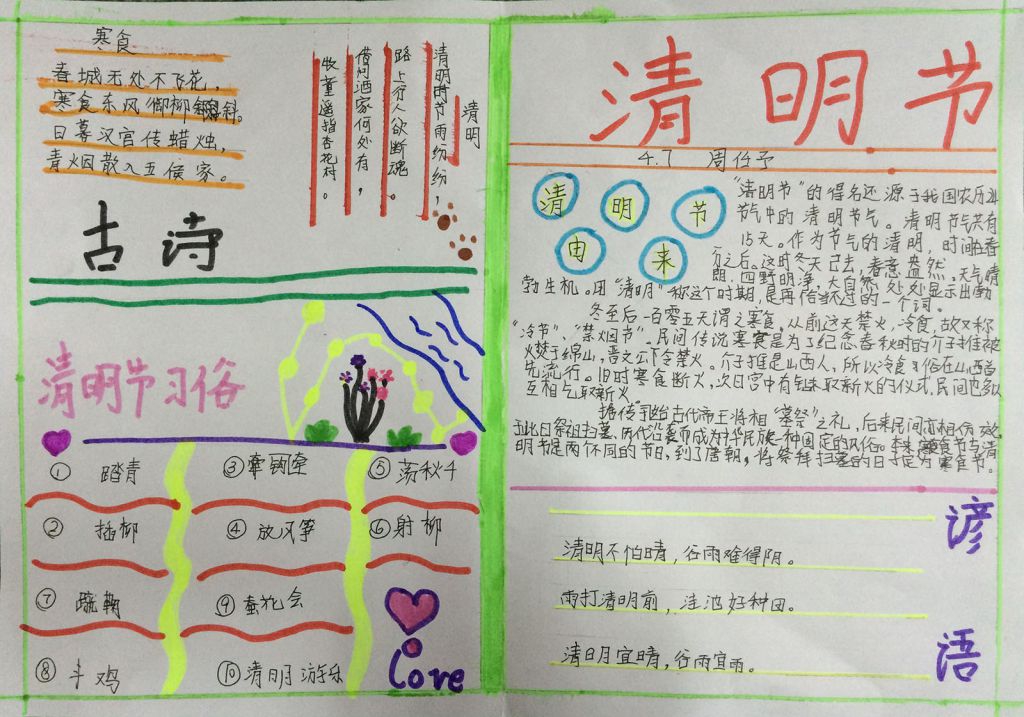 寒食
春城无处不飞花，
寒食东风御柳斜。
日暮汉宫传蜡烛，
青烟散入五侯家。
清明
清明时节雨纷纷，
路上行人欲断魂。
借问酒家何处有，
牧童遥指杏花村。
古诗
清明节习俗
① 踏青
③ 牵钩
⑤ 荡秋千
② 插柳
④ 放风筝
⑥ 射柳
⑦ 蹴鞠
⑨ 蚕花会
⑧ 斗鸡
⑩ 清明游乐
Love
清明节
4.7 周
清明节
由来
"清明节"的得名还源于我国农历24
节气中的清明节气。清明节气共有
15天。作为节气的清明，时间在春
分之后。这时冬天已去，春意盎然，天气晴
朗，四野明净，大自然处处显示出勃
勃生机。用"清明"称这个时期，是再恰当不过的一个词。
冬至后一百零五天谓之寒食。从前这天禁火，冷食，故又称
"冷节"、"禁烟节"。民间传说寒食是为了纪念春秋时的介子推被
火焚于绵山，晋文公下令禁火。介子推是山西人，所以冷食习俗在山西首
先流行。旧时寒食断火，次日宫中有钻木取新火的仪式，民间也多以
互相乞取新火。
据传始古代帝王将相"墓祭"之礼，后来民间亦相仿效
于此日祭祖扫墓，历代沿袭而成为中华民族一种固定的风俗。本来寒食节与清
明节是两个不同的节日，到了唐朝，将祭拜扫墓的日子定为寒食节。
谚语
清明不怕晴，谷雨难得阴。
雨打清明前，洼地好种田。
清明宜晴，谷雨宜雨。